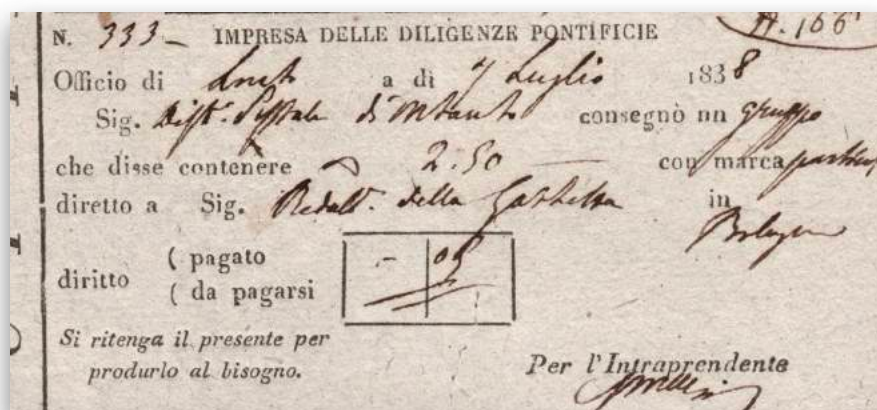 N. 333 – IMPRESA DELLE DILIGENZE PONTIFICIE
Officio di a di 7 Luglio 1838
Sig. Dist. Postale di consegnò un gruppo
che disse contenere 2.50 con marca
diretto a Sig. Redatt. della Gazzetta in
Bologna
diritto ( pagato – 05
( da pagarsi
Si ritenga il presente per
produrlo al bisogno.
Per l'Intraprendente